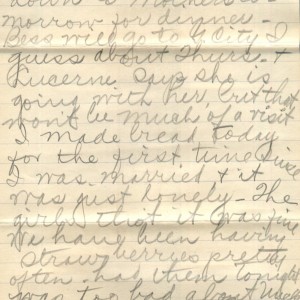 down to Mothers to-
morrow for dinner -
Bess will go to A City I
guess about Thurs. +
Lucerne says she is
going with her, but that
won't be much of a visit
I made bread today
for the first time since
I was married + it
was just lovely - The
girls that it was fine
We have been having
strawberries pretty
often. had them tonight
was too bad about